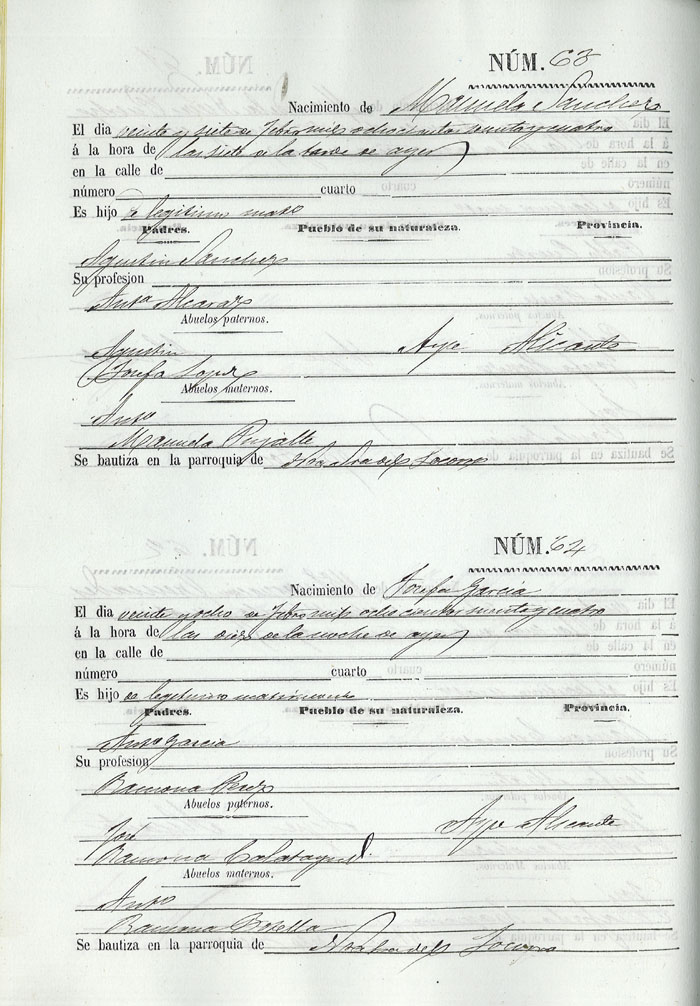 NÚM. 63
Nacimiento de Manuela Sanchez
El dia veinte y siete de Febro mil ochocientos
á la hora de las siete de la tarde de ayer
en la calle de
número cuarto
Es hijo de legitimo mato
Padres. Pueblo de su naturaleza. Provincia.
Agustin Sanchez
Su profesion
Anto Alcaraz
Abuelos paternos.
Agustin Aspe Alicante
Josefa Lopez
Abuelos maternos.
Anto
Manuela Pujalte
Se bautiza en la parroquia de Ntra Sra del Socorro
NÚM. 64
Nacimiento de Josefa Garcia
El dia veinte y ocho de Febro mil ochocientos
á la hora de las diez de la noche de ayer
en la calle de
número cuarto
Es hijo de legitimo matrimonio
Padres. Pueblo de su naturaleza. Provincia.
Anto Garcia
Su profesion
Ramona Perez
Abuelos paternos.
José Aspe Alicante
Ramona Calatayud.
Abuelos maternos.
Anto
Ramona Botella
Se bautiza en la parroquia de Ntra Sra del Socorro